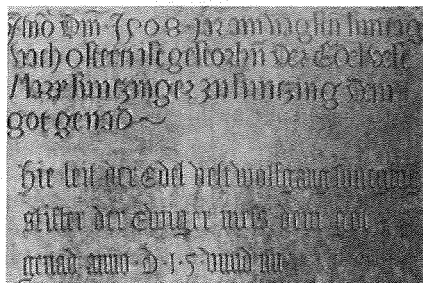 Anno Dm 1508 Jar am nagstn suntag
Nach ostern ist gestorbn Der Edel vest
Marx suntzinger zu suntzing Dem
got genad
Hie leit der Edel vest wolfgang
stifter der Ewiger mess dem got
genad anno D 1 5 und